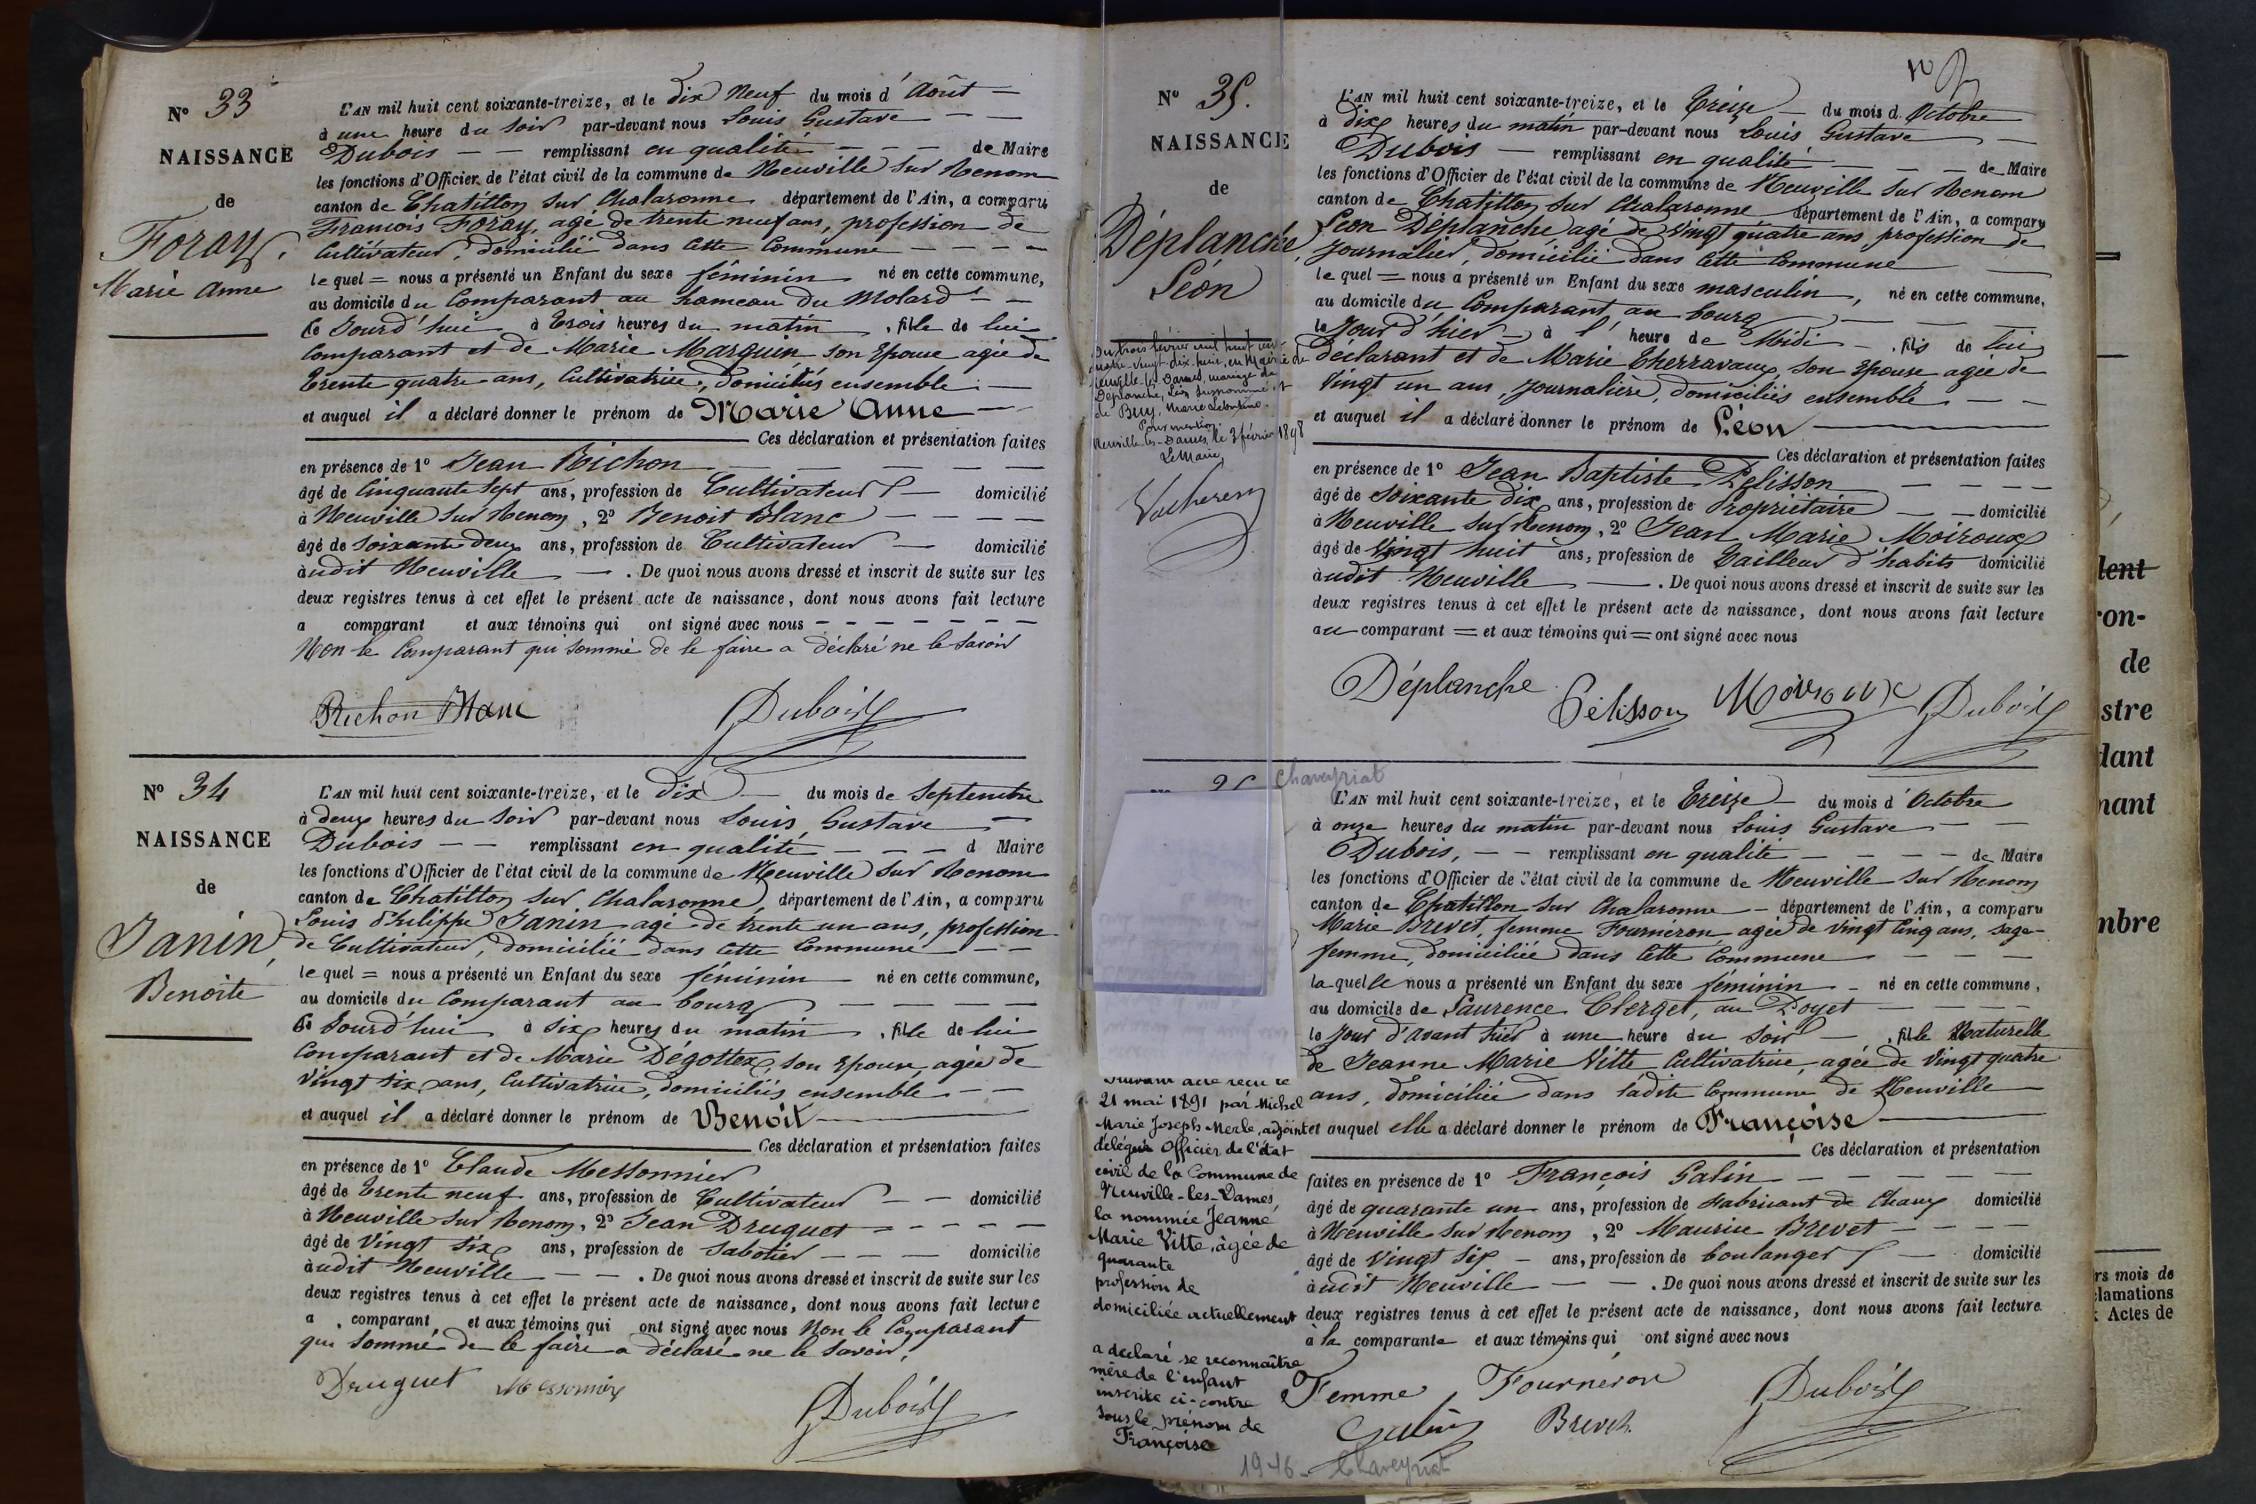 Nº 33
NAISSANCE
de
Foray,
Marie Anne
L'AN mil huit cent soixante-treize, et le dix Neuf du mois d'Août —
à une heure du soir par-devant nous Louis Gustave — —
Dubois — — remplissant en qualité — — — de Maire
les fonctions d'Officier de l'état civil de la commune de Neuville sur Renom
canton de Chatillon sur Chalaronne département de l'Ain, a comparu
François Foray, agé de trente neuf ans, profession de
Cultivateur, domicilié dans cette Commune — — — —
le quel = nous a présenté un Enfant du sexe féminin né en cette commune,
au domicile du Comparant au hameau du Molard — —
le Jourd'hui à Trois heures du matin , fille de lui
Comparant et de Marie Marguin son Epouse agée de
Trente quatre ans, Cultivatrice, domiciliés ensemble —
et auquel il a déclaré donner le prénom de Marie Anne —
Ces déclaration et présentation faites
en présence de 1º Jean Richon — — — — — —
âgé de Cinquante Sept ans, profession de Cultivateur — domicilié
à Neuville sur Renom, 2º Benoit Blanc — — — —
âgé de soixante deux ans, profession de Cultivateur — domicilié
àudit Neuville — . De quoi nous avons dressé et inscrit de suite sur les
deux registres tenus à cet effet le présent acte de naissance, dont nous avons fait lecture
a comparant et aux témoins qui ont signé avec nous — — — — — — —
Non le Comparant qui sommé de le faire a déclaré ne le savoir
Richon Blanc Dubois
Nº 34
NAISSANCE
de
Janin,
Benoite
L'AN mil huit cent soixante-treize, et le Dix — du mois de Septembre
à deux heures du soir par-devant nous Louis Gustave —
Dubois — — remplissant en qualité — — — d Maire
les fonctions d'Officier de l'état civil de la commune de Neuville sur Renom
canton de Chatillon sur Chalaronne, département de l'Ain, a comparu
Louis Philippe Janin agé de trente un ans, profession
de Cultivateur, domicilié dans cette Commune — —
le quel = nous a présenté un Enfant du sexe féminin né en cette commune,
au domicile du Comparant au bourg — — — — —
le Jourd'hui à six heures du matin , fille de lui
Comparant et de Marie Dégottex, son Epouse, agée de
Vingt six ans, Cultivatrice, domiciliés ensemble — —
et auquel il a déclaré donner le prénom de Benoît —
Ces déclaration et présentation faites
en présence de 1º Claude Messonnier
âgé de Trente neuf ans, profession de Cultivateur — — domicilié
à Neuville sur Renom, 2º Jean Druguet — — — — —
âgé de Vingt six ans, profession de Sabotier — — — domicilié
àudit Neuville — — . De quoi nous avons dressé et inscrit de suite sur les
deux registres tenus à cet effet le présent acte de naissance, dont nous avons fait lecture
a comparant et aux témoins qui ont signé avec nous Non le Comparant
qui sommé de le faire a déclaré ne le savoir.
Druguet Messonnier Dubois
Nº 35.
NAISSANCE
de
Déplanche,
Léon
Du trois février mil huit cent
quatre-vingt-dix-huit, en Mairie de
Neuville-les-Dames, mariage de
Déplanche, Léon susnommé, et
de Buy, Marie
Pour mention.
Neuville-les-Dames, le 3 février 1898
Le Maire,
L'AN mil huit cent soixante-treize, et le Treize — du mois d'Octobre
à dix heures du matin par-devant nous Louis Gustave —
Dubois — remplissant en qualité — — — de Maire
les fonctions d'Officier de l'état civil de la commune de Neuville sur Renom
canton de Chatillon sur Chalaronne département de l'Ain, a comparu
Léon Déplanche agé de Vingt quatre ans profession de
Journalier, domicilié dans cette Commune —
le quel = nous a présenté un Enfant du sexe masculin, né en cette commune,
au domicile du Comparant au bourg — — — —
le Jour d'hier à l'heure de Midi — , fils de lui
déclarant et de Marie Cherravaux, son Epouse agée de
Vingt un ans, Journalière, domiciliés ensemble — — —
et auquel il a déclaré donner le prénom de Léon —
Ces déclaration et présentation faites
en présence de 1º Jean Baptiste Pelisson — — — —
âgé de soixante dix ans, profession de Propriétaire — — domicilié
à Neuville sur Renom, 2º Jean Marie Moiroux
âgé de Vingt huit ans, profession de Tailleur d'habits domicilié
àudit Neuville — . De quoi nous avons dressé et inscrit de suite sur les
deux registres tenus à cet effet le présent acte de naissance, dont nous avons fait lecture
au comparant = et aux témoins qui = ont signé avec nous
Déplanche Pélisson Moiroux Dubois
Chaveyriat
L'AN mil huit cent soixante-treize, et le Treize — du mois d'Octobre
à onze heures du matin par-devant nous Louis Gustave — —
Dubois, — — remplissant en qualité — — — — de Maire
les fonctions d'Officier de l'état civil de la commune de Neuville sur Renom
canton de Chatillon sur Chalaronne — département de l'Ain, a comparu
Marie Brevet, femme Fourneron agée de vingt Cinq ans, sage-
femme, domiciliée dans cette Commune — — —
la quelle nous a présenté un Enfant du sexe féminin — né en cette commune,
au domicile de Laurence Clerget, au Poyet — — —
le Jour d'avant hier à une heure du soir — , fille Naturelle
de Jeanne Marie Vitte Cultivatrice, agée de Vingt quatre
ans, domiciliée dans ladite Commune de Neuville
et auquel elle a déclaré donner le prénom de Françoise —
Ces déclaration et présentation
faites en présence de 1º François Galin — — — —
âgé de quarante un ans, profession de Fabricant de Chaux domicilié
à Neuville sur Renom, 2º Maurice Brevet — — — —
âgé de Vingt six — ans, profession de boulanger — domicilié
àudit Neuville — — . De quoi nous avons dressé et inscrit de suite sur les
deux registres tenus à cet effet le présent acte de naissance, dont nous avons fait lecture
à la comparante et aux témoins qui ont signé avec nous
Femme Fourneron Dubois
Galin Brevet
Suivant acte reçu le
21 mai 1891 par Michel
Marie Joseph Merle, adjoint
délégué Officier de l'état
civil de la Commune de
Neuville-les-Dames,
la nommée Jeanne
Marie Vitte, âgée de
quarante
profession de
domiciliée actuellement
a déclaré se reconnaître
mère de l'enfant
inscrite ci-contre
sous le prénom de
Françoise
1946 - Chaveyriat
lent
ron-
de
stre
dant
nant
mbre
rs mois de
clamations
Actes de